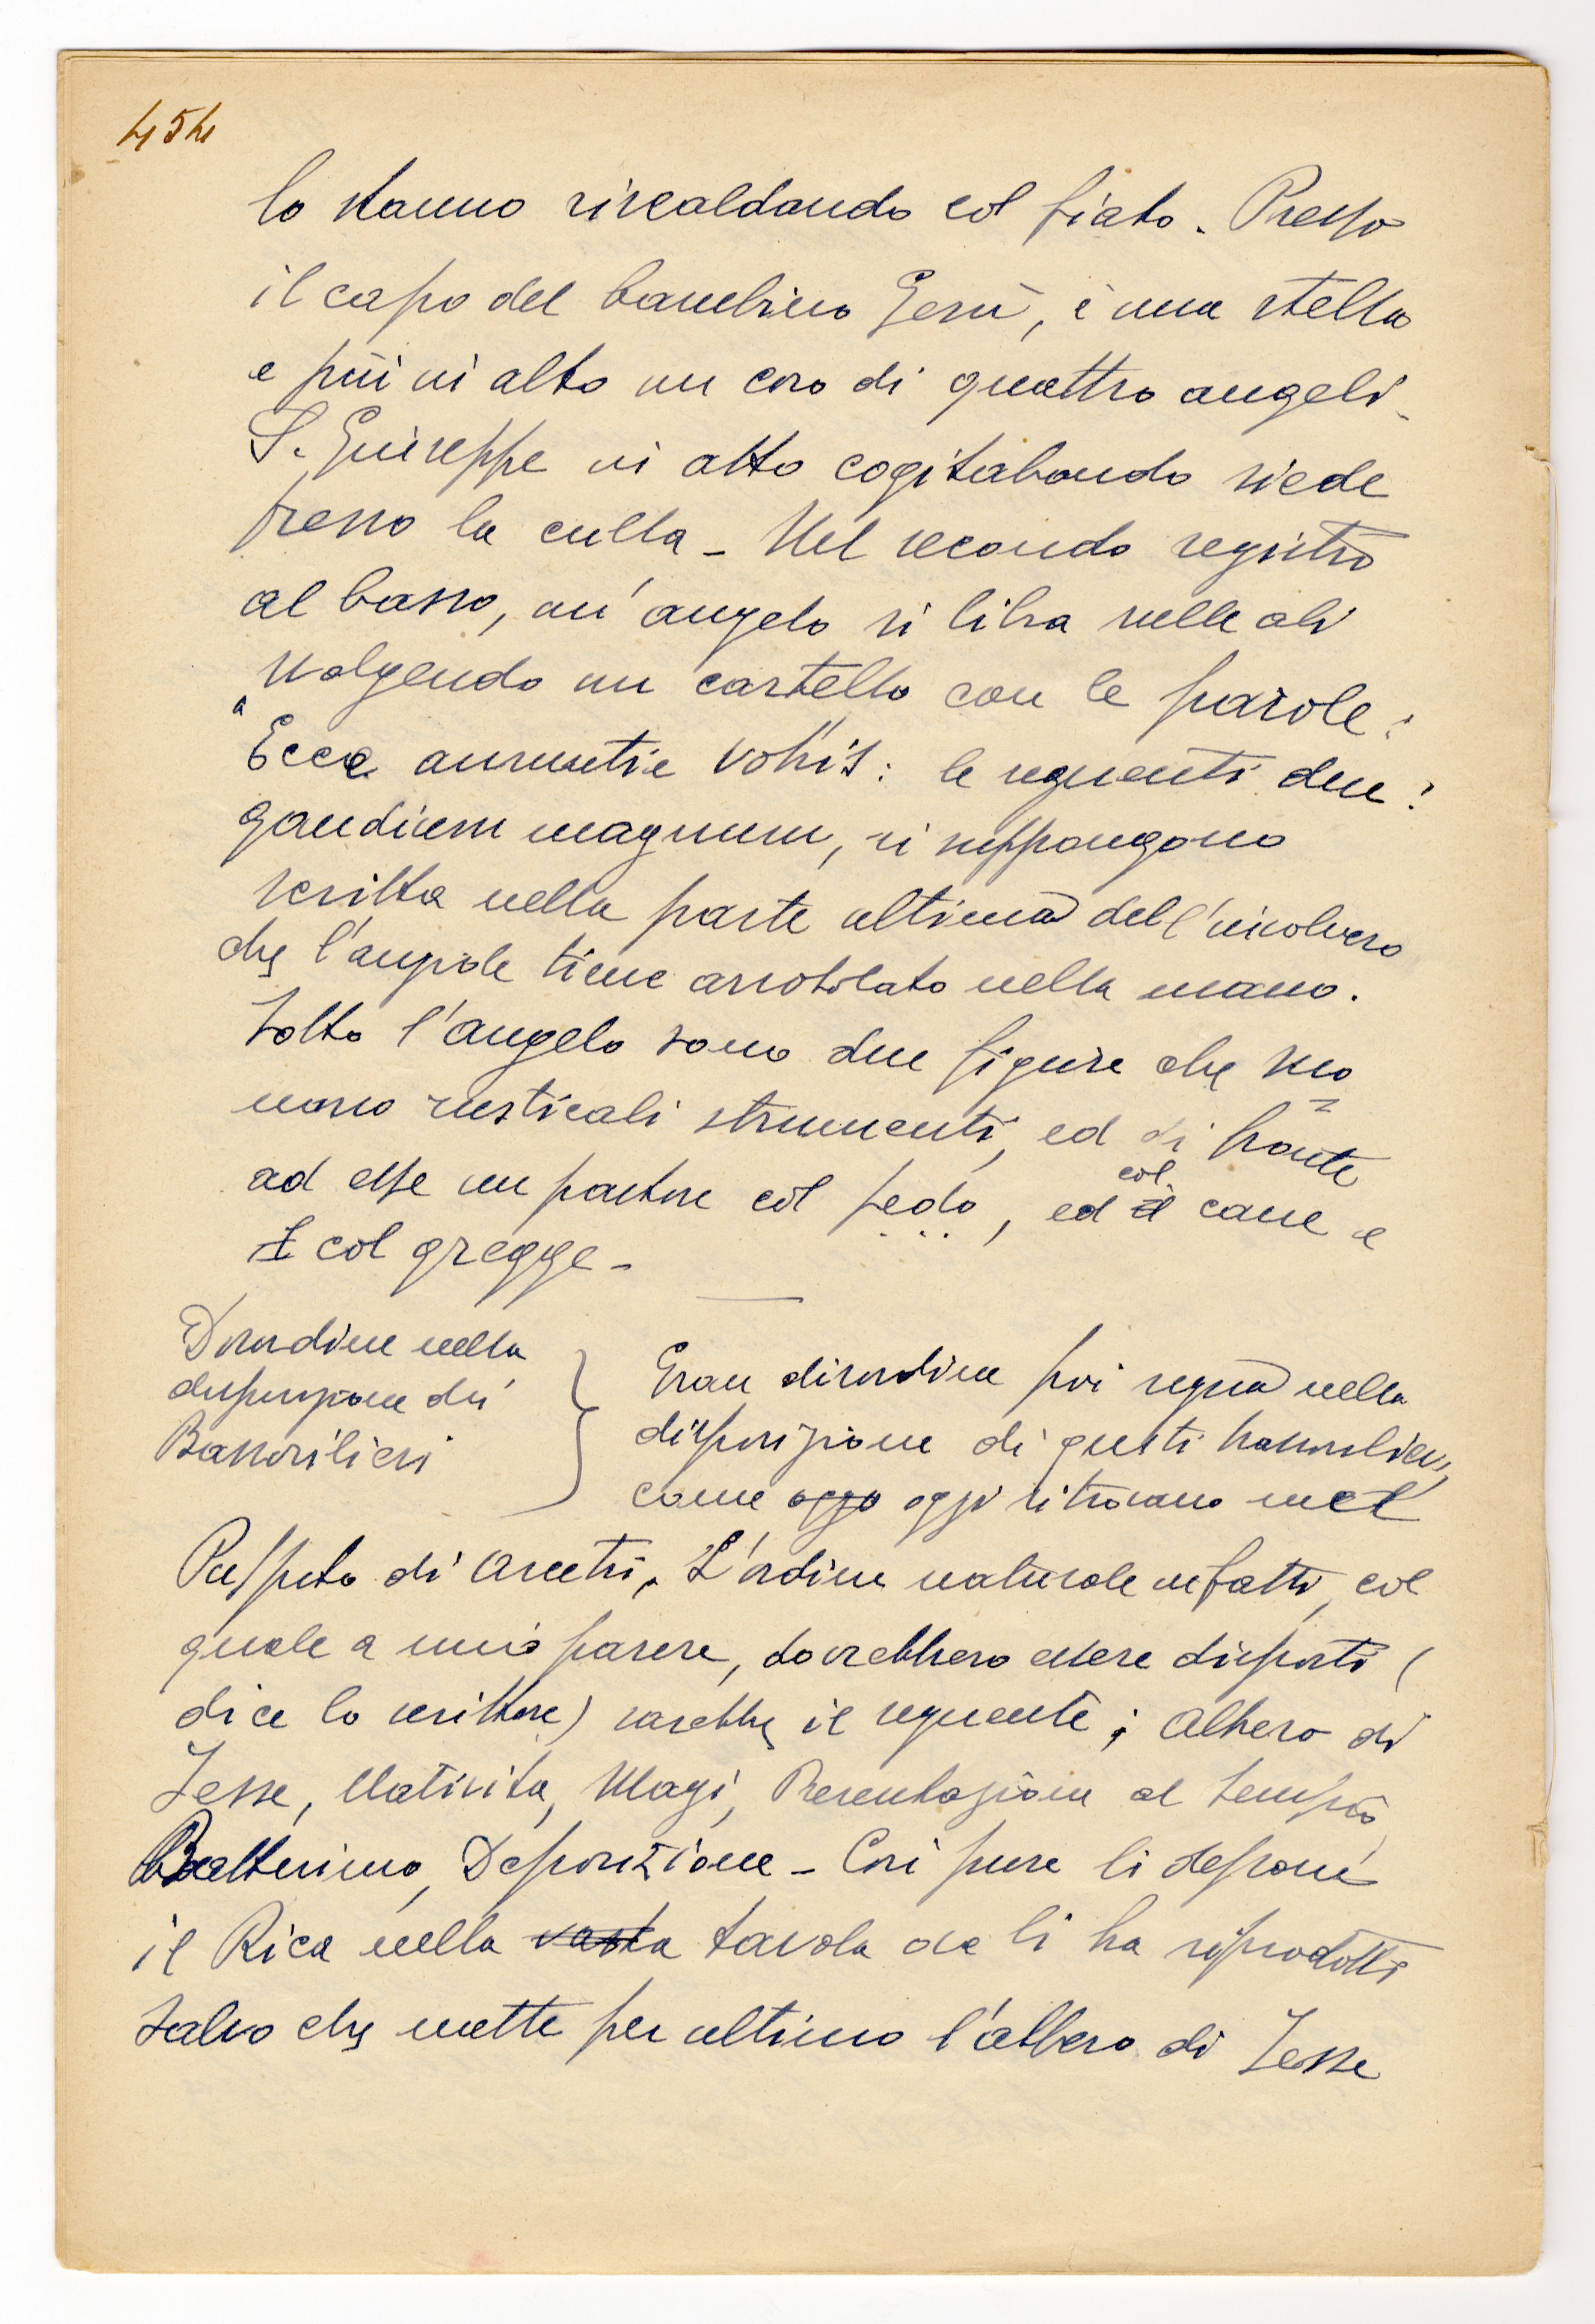 454
lo stanno riscaldando col fiato. Presso
il capo del bambino Gesù, è una stella
e più in alto un coro di quattro angeli.
S. Giuseppe in atto cogitabondo siede
presso la culla - Nel secondo registro
al basso, un'angelo si libra sulle ali
svolgendo un cartello con le parole:
"Ecce annuntie vobis": le seguenti due:
gaudium magnum, si suppongono
scritta nella parte ultima dell'
che l' tiene arrotolato nella mano.
Sotto l'angelo sono due figure che suo
nano rusticali strumenti, ed di fronte
ad esse un pastore col pedo, ed il col cane e
I col gregge -
Disordine nella
disposizione dei
Bassorilievi
Gran disordine poi regna nella
disposizione di questi bassorilievi,
come oggo oggi si trovano nel
Pulpito di Arcetri. L'ordine naturale infatti, col
quale a mio parere, dovrebbero essere disposti (
dice lo scrittore) sarebbe il seguente; albero di
Jesse, Natività, Magi, Presentazione al tempio,
Battesimo, Deposizione - Così pure li
il Rica nella vasta tavola li ha riprodotti
salvo che mette per ultimo l'albero di Jesse